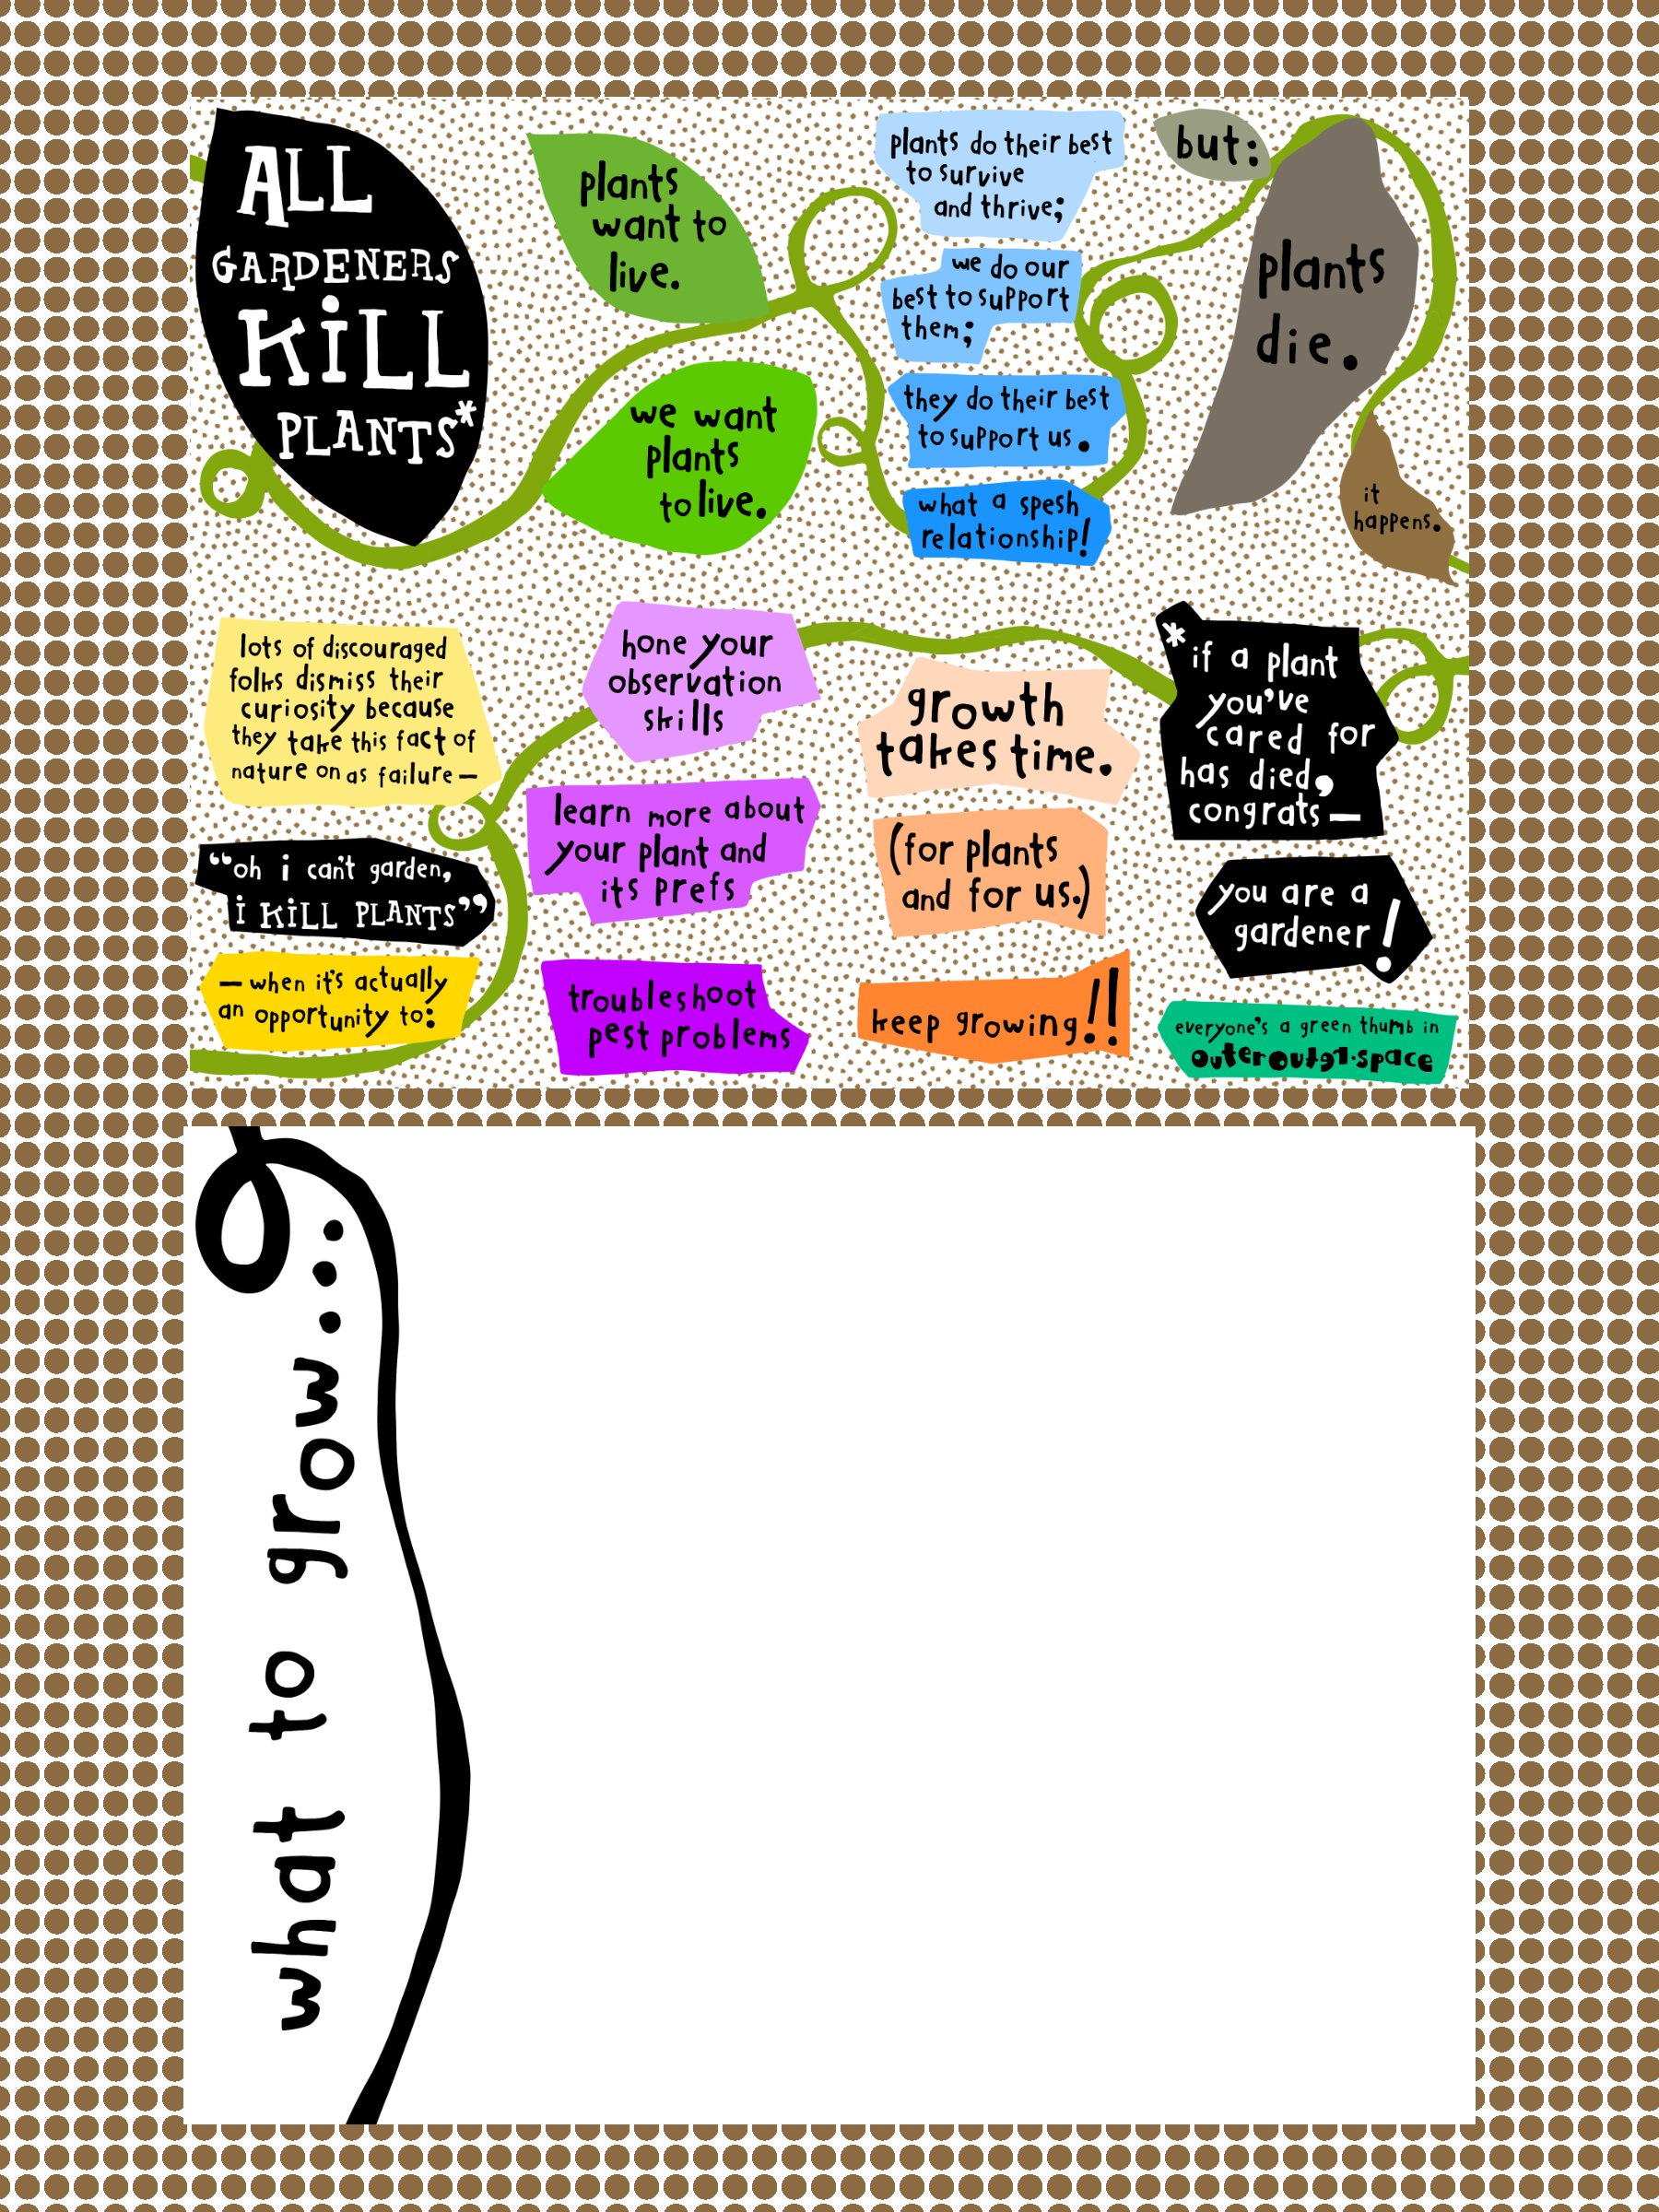 ALL
GARDENERS
KiLL
PLANTS*
plants
want to
live.
we want
plants
to live.
plants do their best
to survive
and thrive;
we do our
best to support
them;
they do their best
to support us.
what a spesh
relationship!
but:
plants
die.
it
happens.
lots of discouraged
folks dismiss their
curiosity because
they take this fact of
nature on as failure—
“oh i can't garden,
i KiLL PLANTS”
— when it's actually
an opportunity to:
hone your
observation
skills
learn more about
your plant and
its prefs
troubleshoot
pest problems
growth
takes time.
(for plants
and for us.)
keep growing!!
*if a plant
you've
cared for
has died,
congrats—
you are a
gardener!
everyone's a green thumb in
outerouter.space
what to grow...